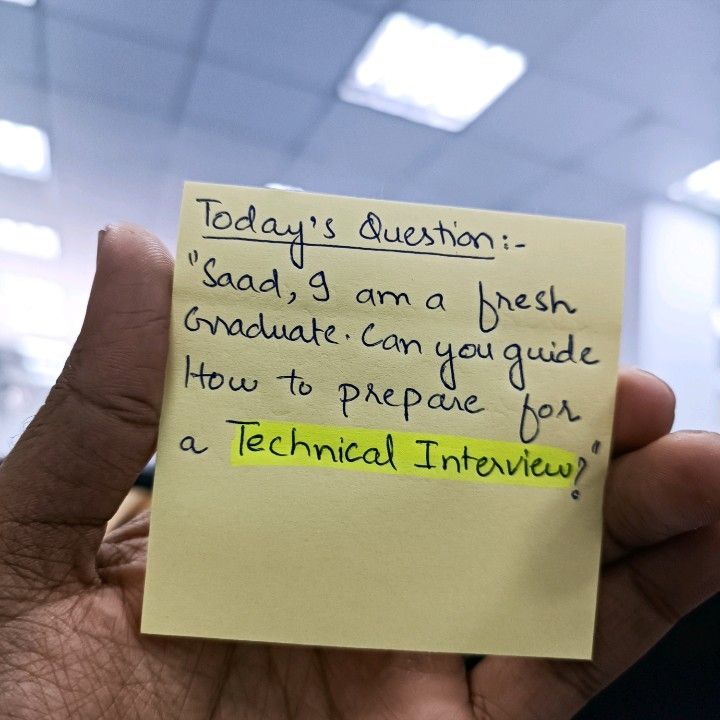 Today's Question:-
"Saad, I am a fresh
Graduate. Can you guide
How to prepare for
a Technical Interview?"